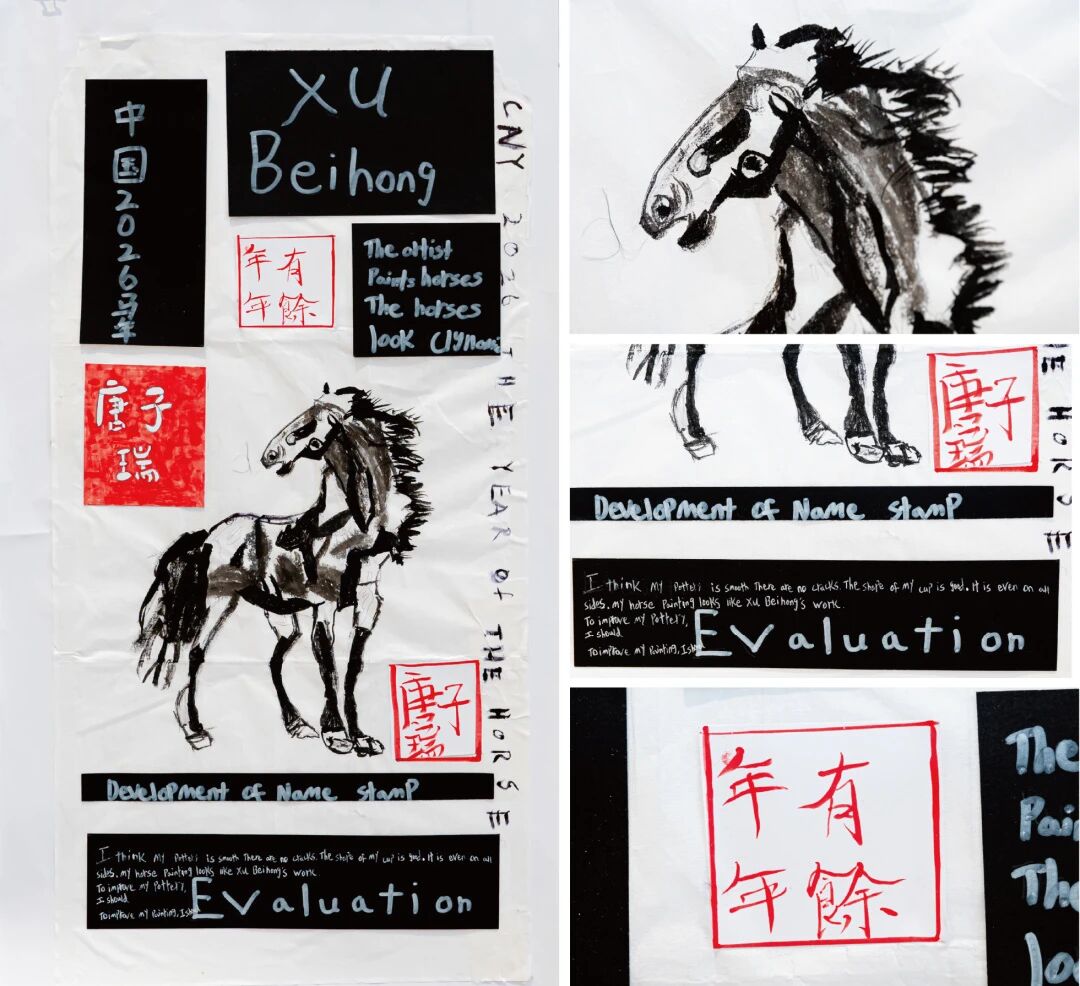 中国2026马年
XU
Beihong
CNY 2026 THE YEAR Of THE HORSE
年年
有餘
The artist
Paints horses
The horses
look dynami
唐子
瑞
唐子
瑞
Development of Name stamP
I think My Potteri is smooth There are no cracks. The shape of my cup is good. It is even on all
sides. my horse Painting looks like Xu Beihong's work.
To improve my Pottery,
I should
To improve my Painting, I sh
Evaluation
唐子
瑞
HE HORSE
Development of Name stamP
I think My Potteri is smooth There are no cracks. The shape of my cup is good. It is even on all
sides. my horse Painting looks like Xu Beihong's work.
To improve my Pottery,
I should
To improve my Painting, I sh
Evaluation
年年
有餘
The
Pai
The
lo